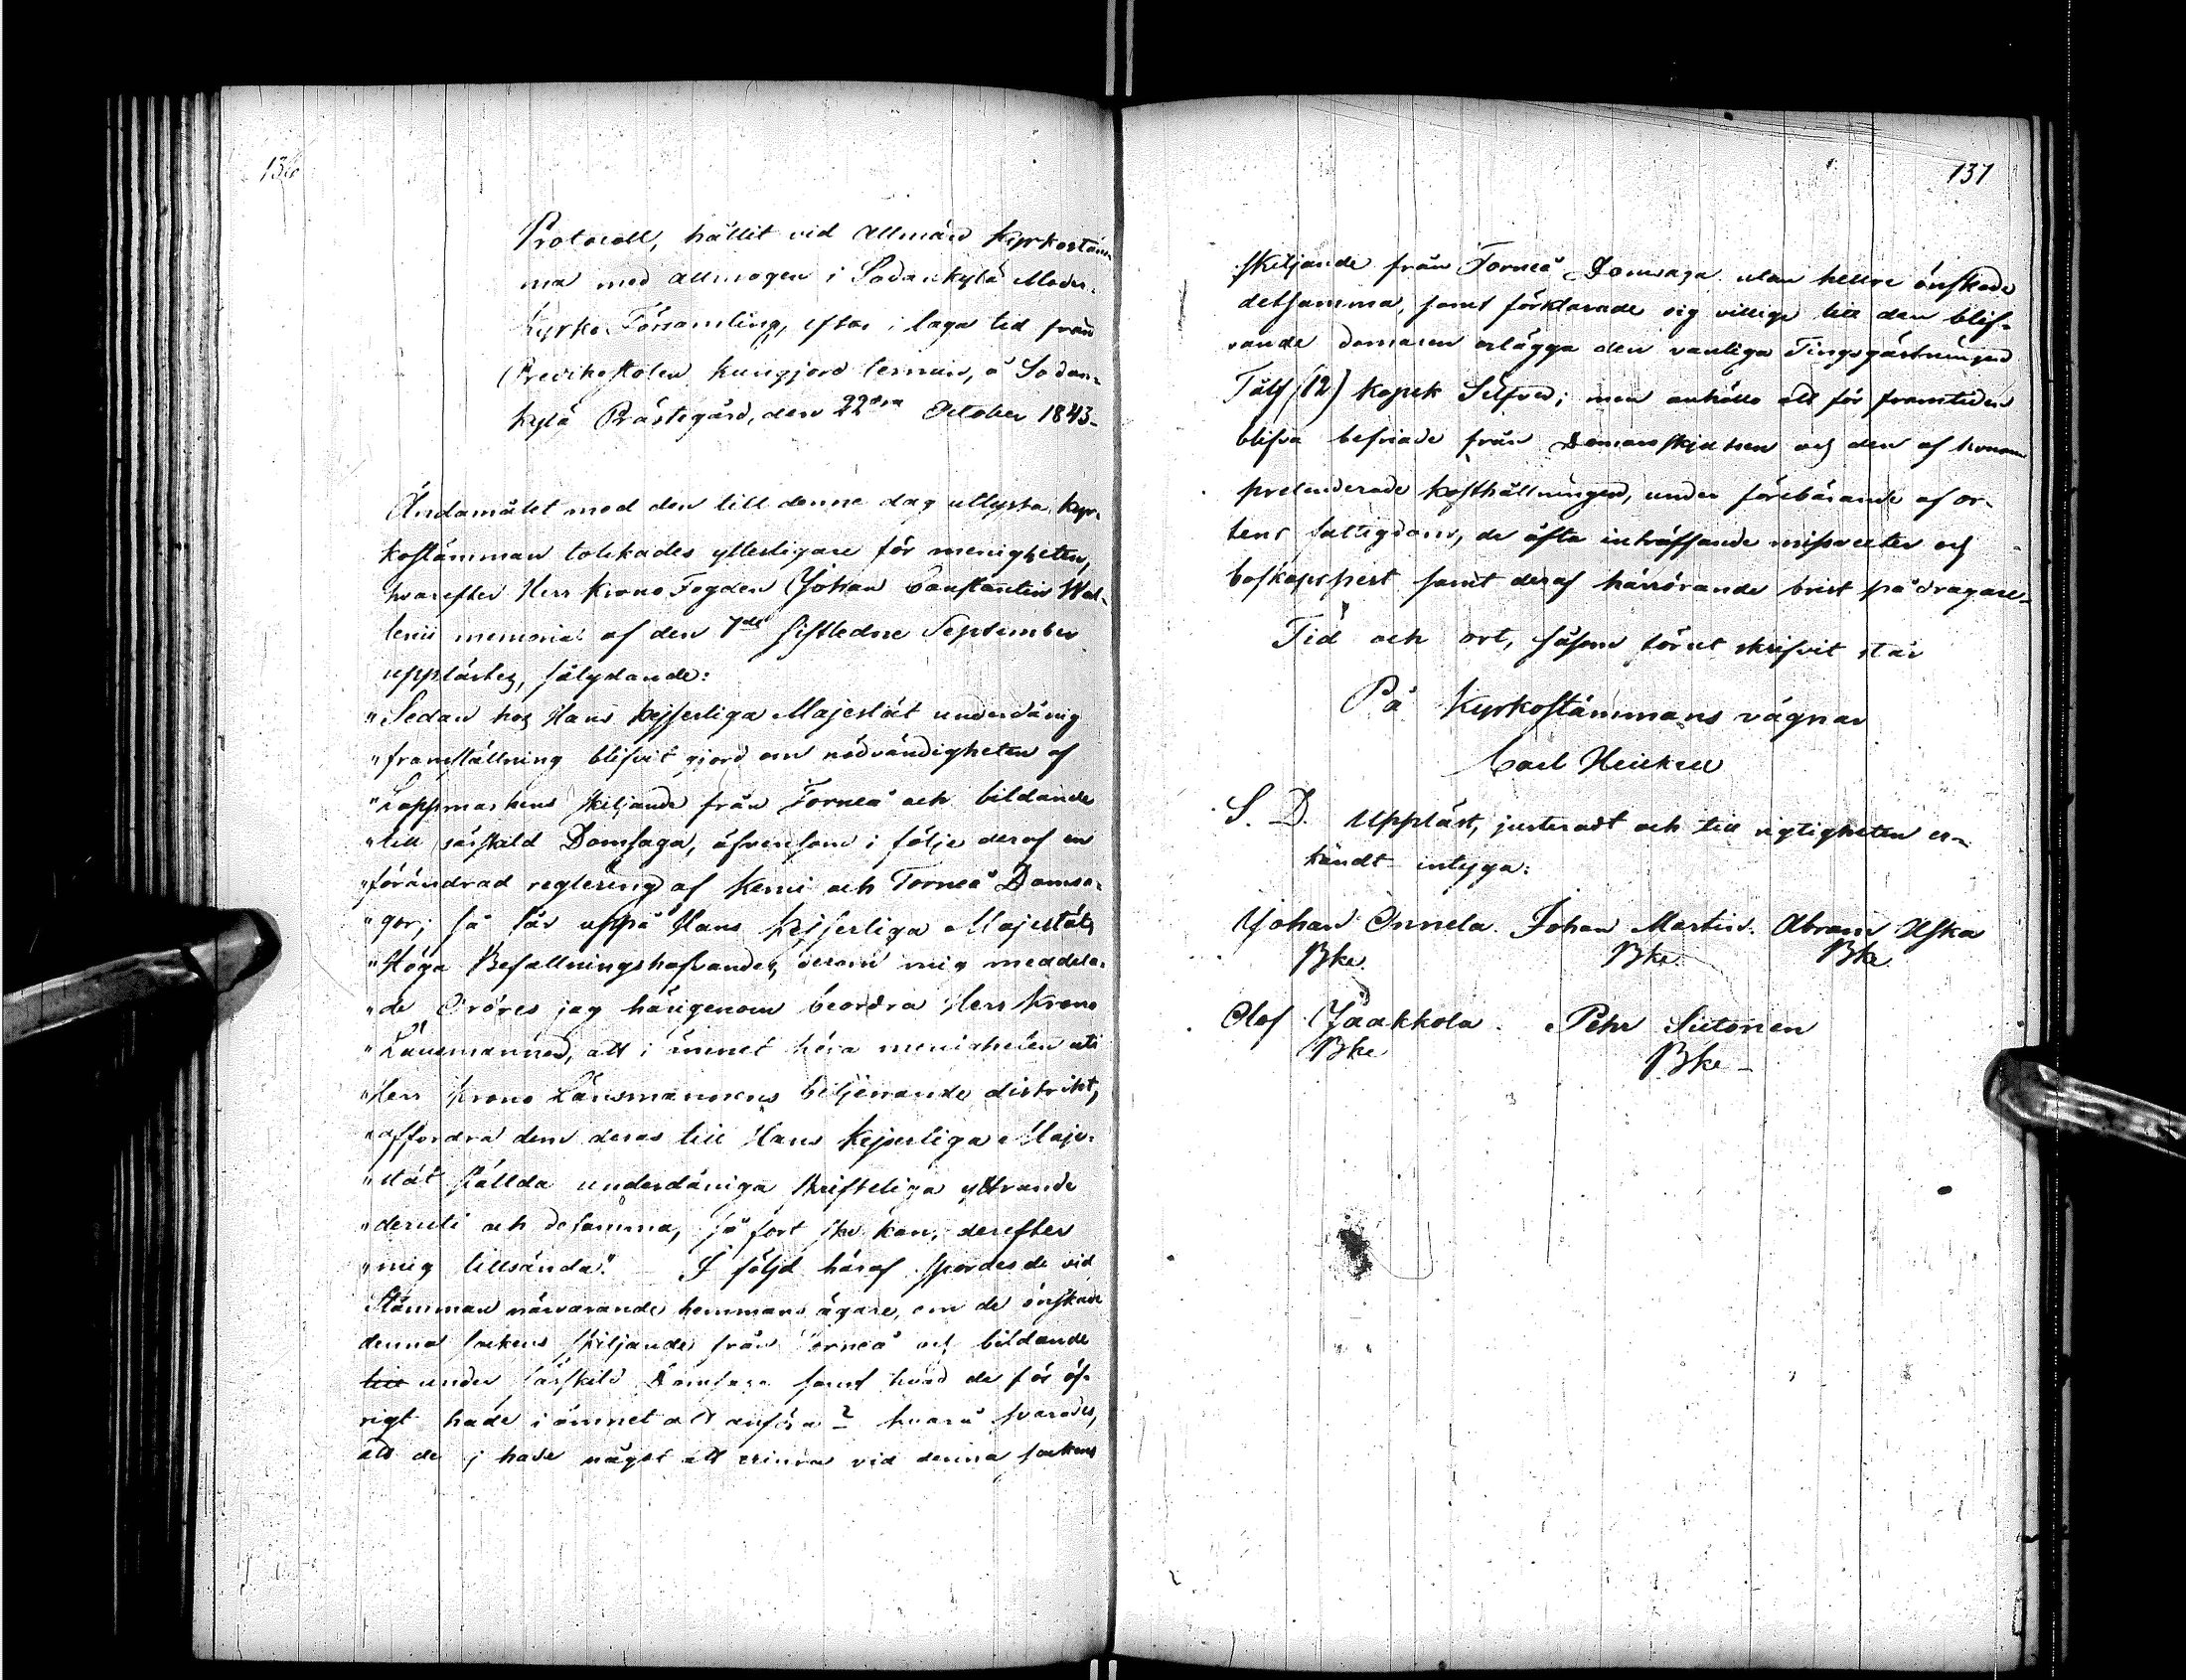 136
Protocoll, hållit vid allmän Kyrkostäm-
ma med allmogen i Sodankylä Moder-
kyrko Församling, efter i laga tid från
Predikostolen kungjord termin, å Sodan-
kylä Prästegård, den 22dra October 1843.
Ändamålet med den till denne dag utlysta kyr-
kostämman tolckades ytterligare för menigheten,
hvarefter Herr Krono Fogden Johan Constantin Wal-
lenii memorial af den 7de sistledne September
upplästes, sålydande:
"Sedan hos Hans Kejserliga Majestät underdånig
"framställning blifvit gjord om nödvändigheten af
"Lappmarkens skiljande från Torneå och bildande
"till särskild Domsaga, äfvensom i följe deraf en
"förändrad reglering af Kemi och Torneå Domsa-
"gor; så får uppå Hans Kejserliga Majestäts
"Höga Befallningshafvandes, derom mig meddela-
"de Ordres jag härigenom beordra Herr Krono
"Länsmannen, att i ämnet höra menigheten uti
"Herr Krono Länsmannens betjenande distrikt,
"affordra dem deras till Hans Kejserliga Maje-
"stät ställda underdåniga skrifteliga yttrande
"deruti och desamma, så fort ske kan, derefter
"mig tillsända". I följd häraf spordes de vid
Stämman närvarande hemmans ägare, om de önskade
denna sockens skiljande från Torneå och bildande
till under särskild Domsaga samt hvad de för öf-
rigt hade i ämnet att anföra? hvarå svarades,
att de ej hade något att erinra vid denna sockens
137
skiljande från Torneå Domsaga utan hellre önskade
detsamma, samt förklarade sig villige till den blif-
vande domaren erlägga den vanliga Tingsgästningen
Tolf (12) kopek Silfver; men anhöllo att för framtiden
blifva befriade från Domareskjutsen och den af honom
pretenderade kosthållningen, under förebärande af or-
tens fattigdom, de ofta inträffande missvexter och
boskapspest samt deraf härrörande brist på dragare.
Tid och ort, såsom förut skrifvit står
På Kyrkostämmans vägnar
Carl Heickell
S. D. Uppläst, justeradt och till rigtigheten er-
kändt intyga:
Johan Onnela. Johan Martin. Abram Uska
Bke. Bke. Bke.
Olof Jaakkola. Pehr Siitonen
Bke Bke